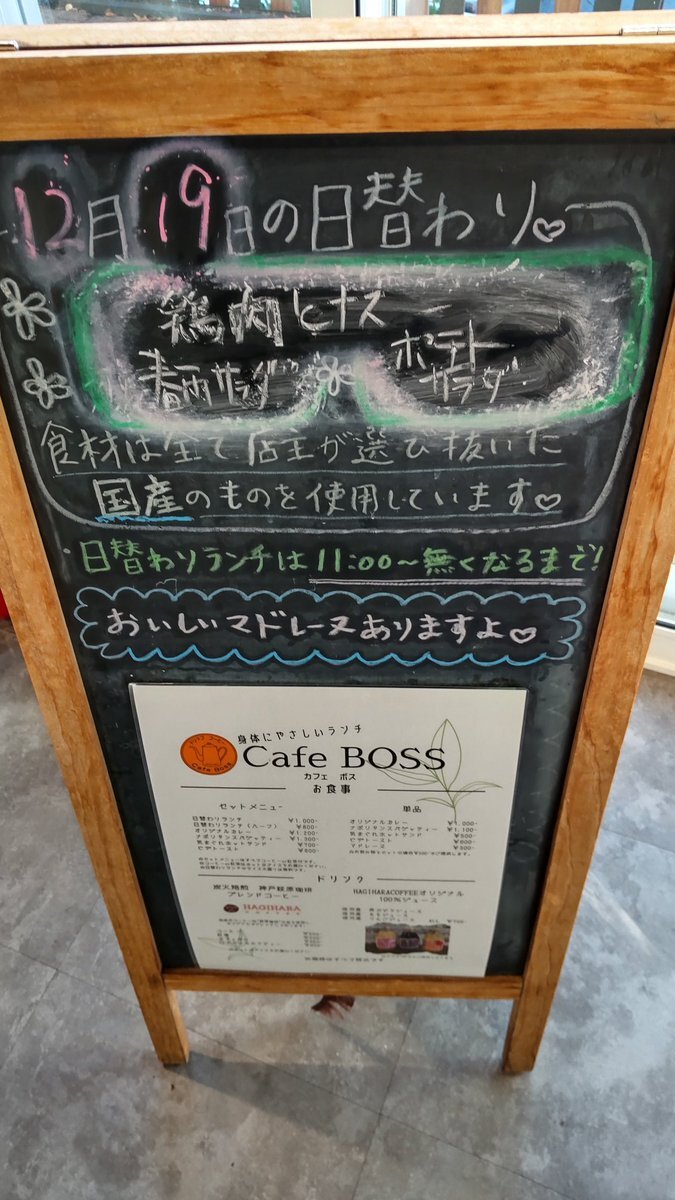 12月19日の日替わり♡
鶏肉ヒナスー
春雨サラダ ポテトサラダ
食材は全て店主が選び抜いた
国産のものを使用しています♡
・日替わりランチは11:00〜無くなるまで!
おいしいマドレーヌありますよ♡
身体にやさしいランチ
Cafe BOSS
Cafe BOSS
カフェ ボス
お食事
セットメニュー
日替わりランチ ¥1,000-
日替わりランチ(ハーフ) ¥800-
オリジナルカレー ¥1,200-
ナポリタンスパゲッティー ¥1,300-
気まぐれホットサンド ¥700-
ピザトースト ¥800-
単品
オリジナルカレー ¥1,000-
ナポリタンスパゲッティー ¥1,100-
気まぐれホットサンド ¥500-
ピザトースト ¥600-
マドレーヌ ¥300-
ドリンク
炭火焙煎 神戸萩原珈琲
ブレンドコーヒー
HAGIHARA
COFFEE
HAGIHARACOFFEEオリジナル
100%ジュース